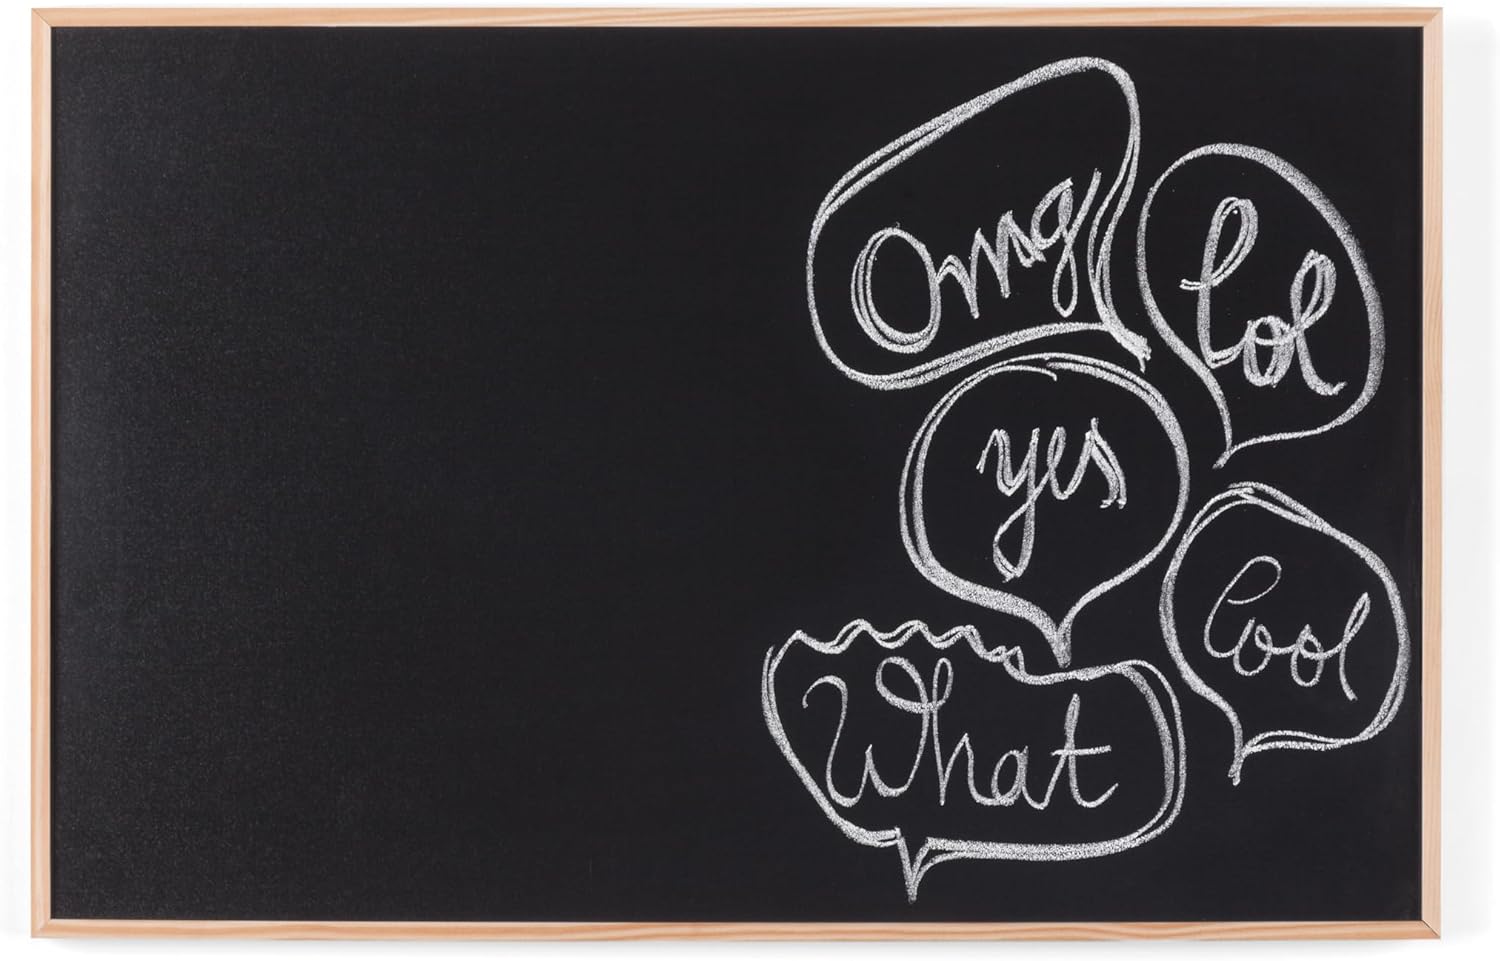 Omg
lol
yes
Cool
What